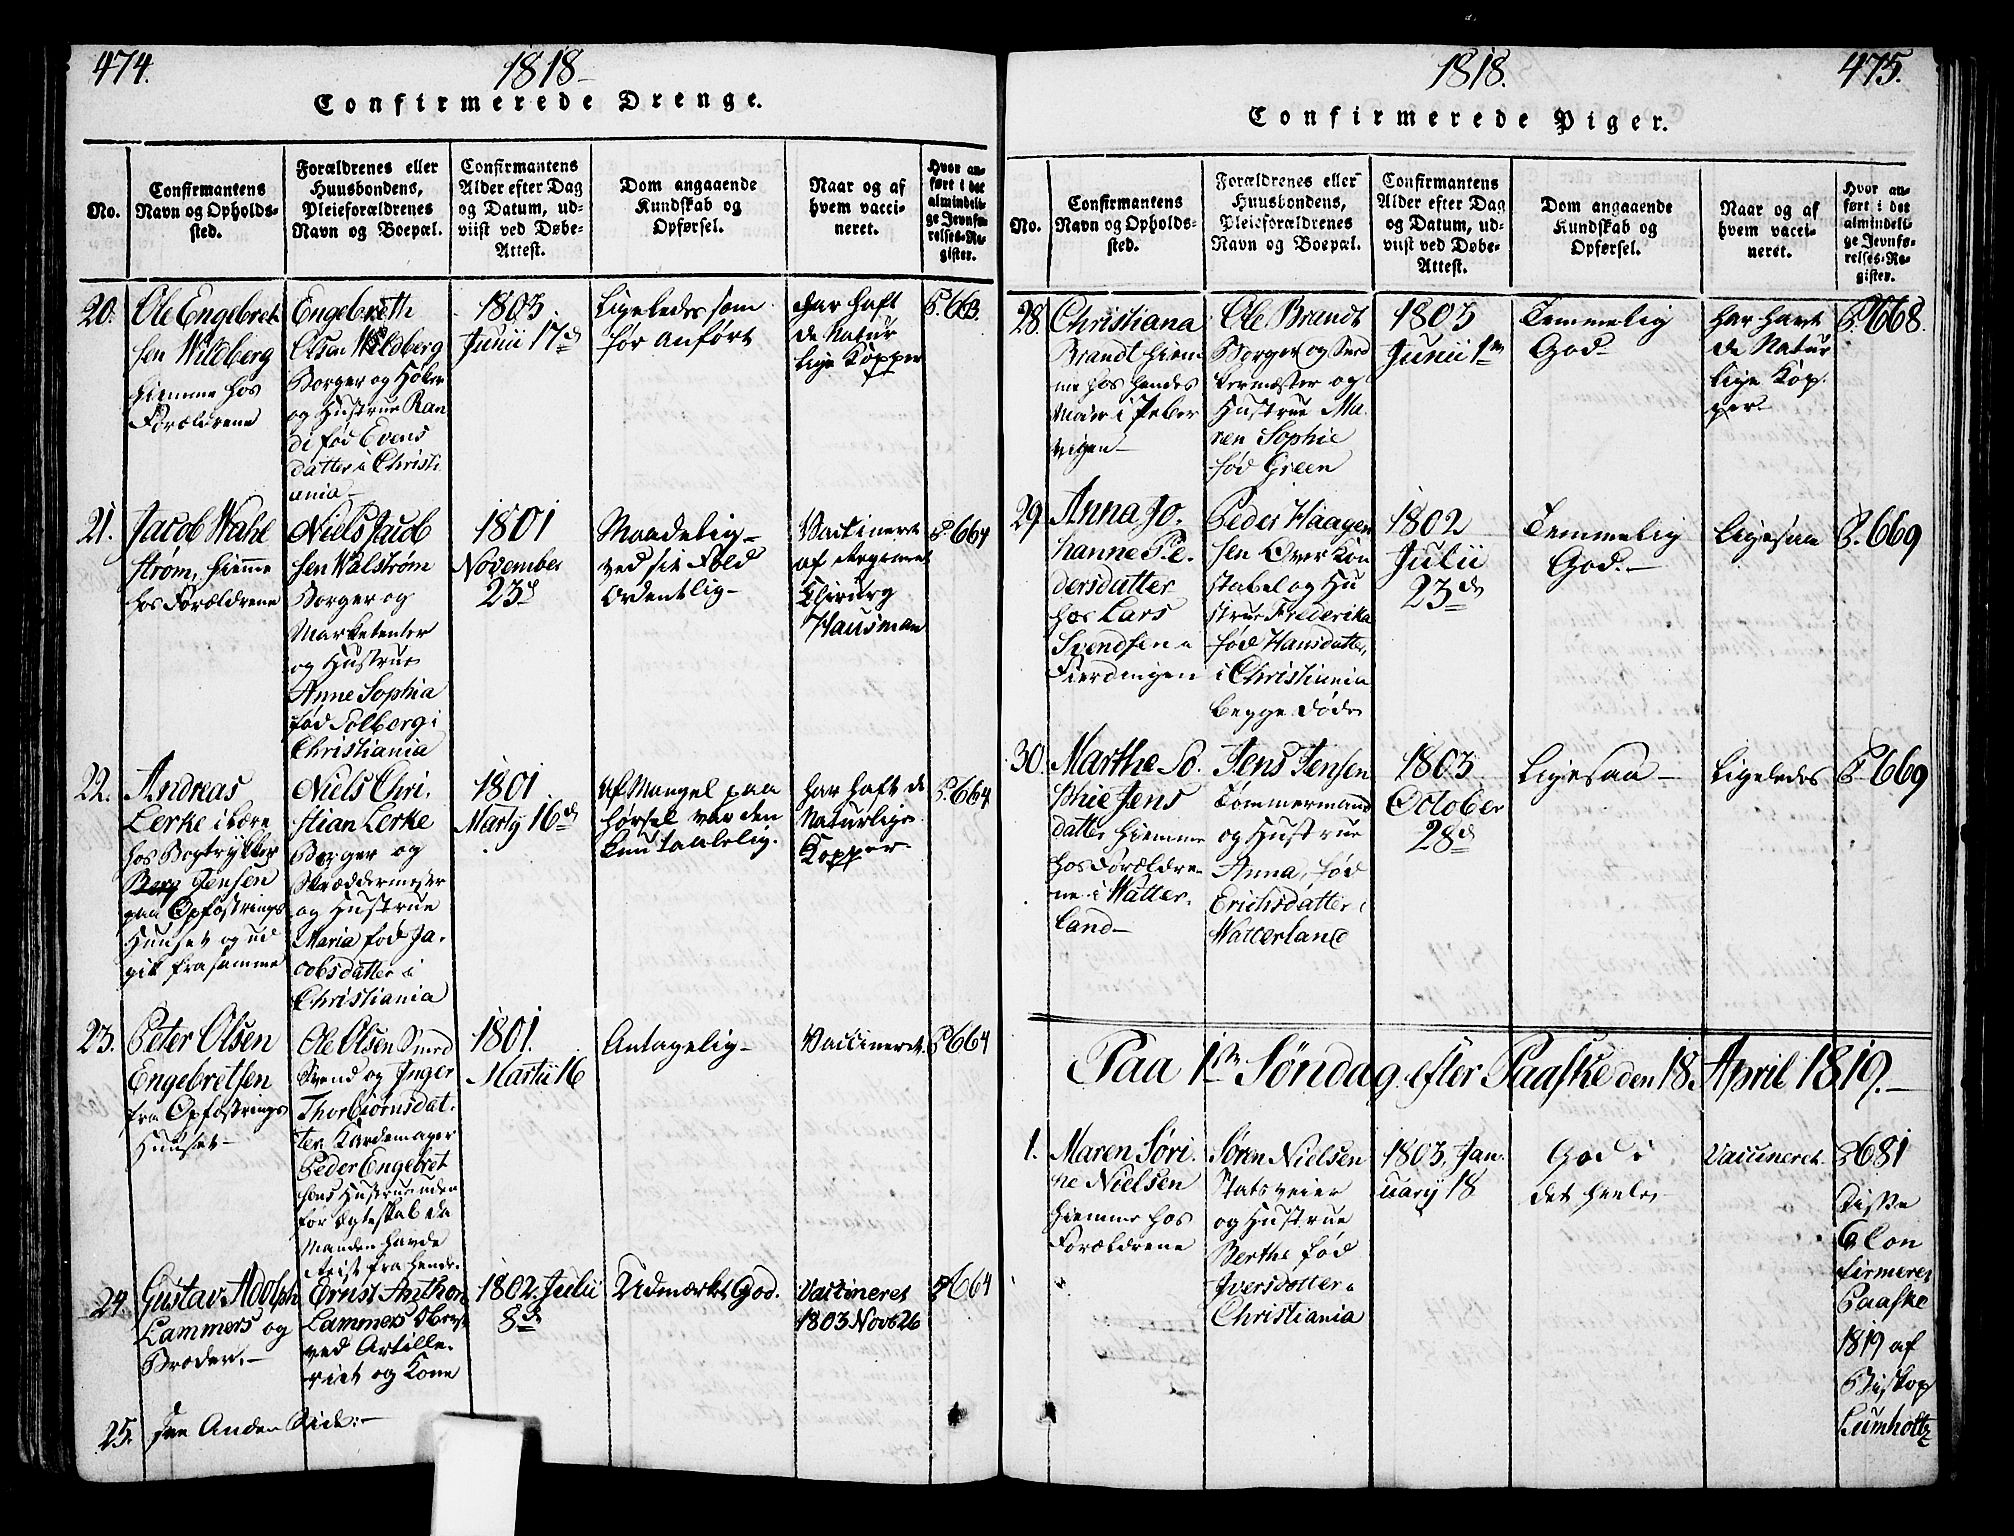 474.
1818
Confirmerede Drenge.
No.
Confirmantens
Navn og Opholds-
sted.
Forældrenes eller
Huusbondens,
Pleieforældrenes
Navn og Boepæl.
Confirmantens
Alder efter Dag
og Datum, ud-
viist ved Døbe-
Attest.
Dom angaaende
Kundskab og
Opførsel.
Naar og af
hvem vacci-
neret.
Hvor an-
ført i det
almindeli-
ge Jevnfø-
relses-Re-
gister.
20.
Ole Engebret
sen Wildberg
hiemme hos
Forældrene
Engebreth
Olsen Wildberg
Borger og Høker
og Hustrue Ran
di fød Evens
datter i Christi
ania
1803
Junii 17de
Ligeledes som
før anført
har haft
de Natur
lige Kopper
P. 663.
21.
Jacob Wahl
strøm, hiemme
hos Forældrene
Niels Jacob
sen Walstrøm
Borger og
Marketenter
og Hustrue
Anne Sophia
fød Solberg i
Christiania
1801
November
23d
Maadelig
ved sit Fold
Ordentlig
Vaccineret
af Regiment
Chirurg
Hausman
P. 664
22.
Andreas
Lerke i lære
hos Bogtrykker
Berg Jensen
paa Opfostrings
Huuset og ud
gik fra samme
Niels Chri
stian Lerke
Borger og
Skræddermester
og Hustrue
Maria fød Ja-
cobsdatter i
Christiania
1801
Martij 16de
Af Mangel paa
hørsel var den
kun taalelig.
har haft de
Naturlige
Kopper
P. 664
23.
Peter Olsen
Engebretsen
fra Opfostrings
Huuset
Ole Olsen Smed
Svend og Inger
Thorbiørnsdat-
ter Kardemager
Peder Engebret
sens Hustrue uden
for Ægteskab da
Manden havde
reist fra hende.
1801.
Martii 16
Antagelig
Vaccineret.
P. 664
24.
Gustav Adolph
Lammers og
Broder.
Ernst Anthon
Lammers Oberst
ved Artille-
riet og Kone
1802. Julii
8de
Udmærket God.
Vaccineret
1803 Novb 26
P. 664
25.
see Anden Side:
1818.
475.
Confirmerede Piger.
No.
Confirmantens
Navn og Opholds-
sted.
Forældrenes eller
Huusbondens,
Pleieforældrenes
Navn og Boepæl.
Confirmantens
Alder efter Dag
og Datum, ud-
viist ved Døbe-
Attest.
Dom angaaende
Kundskab og
Opførsel.
Naar og af
hvem vacci-
neret.
Hvor an-
ført i det
almindeli-
ge Jevnfø-
relses-Re-
gister.
28
Christiana
Brandt hiem
me hos hendes
Moder i Peber
vigen
Ole Brandt
Borger og Sned
kermæster og
Hustrue Ma-
ren Sophie
fød Green
1803
Junii 1m
Temmelig
God
har havt
de Natur
lige Kop-
per
P. 668.
29
Anna Jo-
hanne Pe-
dersdatter
hos Lars
Svendsen i
Fierdingen
Peder Haagen
sen Over Kon
stabel og Hu
strue Frederika
fød Hansdatter,
i Christiania
begge døde
1802
Julii
23de
Temmelig
God.
Ligesaa
P. 669
30.
Marthe So-
phie Jens
datter hiemme
hos Forældre-
ne i Watter-
land
Jens Jensen
Tømmermand
og Hustrue
Anna, fød
Erichsdatter i
Watterland
1803
October
28d
Ligesaa
Ligeledes
P. 669
Paa 1ste Søndag efter Paaske den 18. April 1819.
1.
Maren Søri-
ne Nielsen
hiemme hos
Forældrene
Søren Nielsen
Statsveier
og Hustrue
Berthe fød
Iversdotter i
Christiania
1803, Jan-
uarij 18
God i
det heele
Vaccineret.
P. 681
Disse
Con
firmeret
Paaske
1819 af
Biskop
Lumholtz